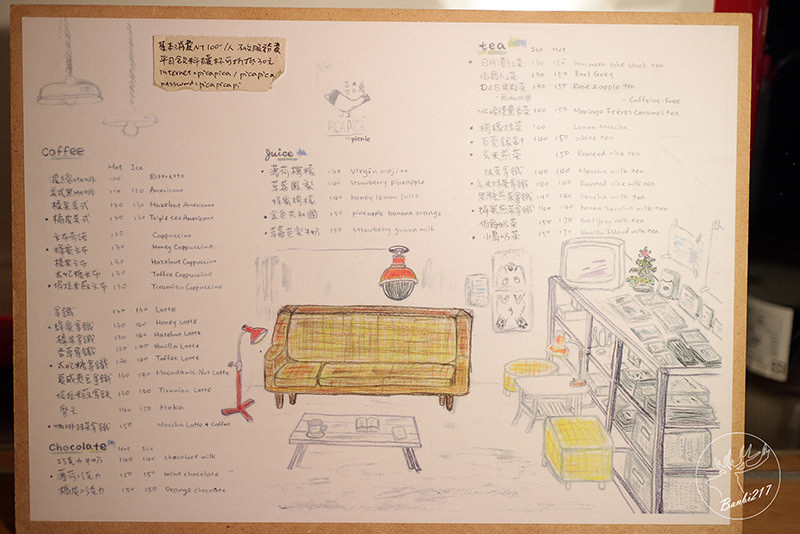 基本消費NT100/人 不收服務費
平日飲料續杯可折抵30元
internet → picapica / picapica
password: picapicapi
PICAPICA
picnic
Coffee
Hot Ice
120 Ristretto
美式黑咖啡 110 120 Americano
榛果美式 120 130 Hazelnut Americano
橘皮美式 120 130 Triple sec Americano
卡布奇諾 120 Cappuccino
蜂蜜卡布 130 Honey Cappuccino
榛果卡布 130 Hazelnut Cappuccino
太妃糖卡布 130 Toffee Cappuccino
提拉米蘇卡布 130 Tiramisu Cappuccino
拿鐵 120 130 Latte
蜂蜜拿鐵 130 140 Honey Latte
榛果拿鐵 130 140 Hazelnut Latte
香草拿鐵 130 140 Vanilla Latte
太妃糖拿鐵 130 140 Toffee Latte
夏威夷豆拿鐵 130 140 Macadamia Nut Latte
提拉米蘇拿鐵 130 140 Tiramisu Latte
摩卡 140 150 Moka
咖啡抹茶拿鐵 150 Matcha Latte + Coffee
Chocolate
Hot Ice
巧克力牛奶 140 140 chocolate milk
薄荷巧克力 150 150 mint chocolate
橘皮巧克力 150 150 orange chocolate
Juice
薄荷檸檬 140 Virgin mojito
草莓鳳梨 140 strawberry pineapple
蜂蜜檸檬 140 honey lemon juice
金色共和國 150 pineapple banana orange
草莓芭樂牛奶 150 strawberry guava milk
tea
Ice Hot
日月潭紅茶 130 130 sun moon lake black tea
伯爵紅茶 130 150 Earl Grey
150 Rose & apple tea
- Caffeine-Free
140 150 Mariage Frères caramel tea
140 Lemon Matcha
白毫銀針 140 150 white tea
玄米煎茶 150 Roasted rice tea
抹茶拿鐵 140 140 Matcha milk tea
玄米抹茶拿鐵 140 140 Roasted rice milk tea
140 140 Sencha milk tea
140 140 honey milk tea
伯爵奶茶 150 170 Earl grey milk tea
小島奶茶 150 170 Vanilla Island milk tea
Banbi217